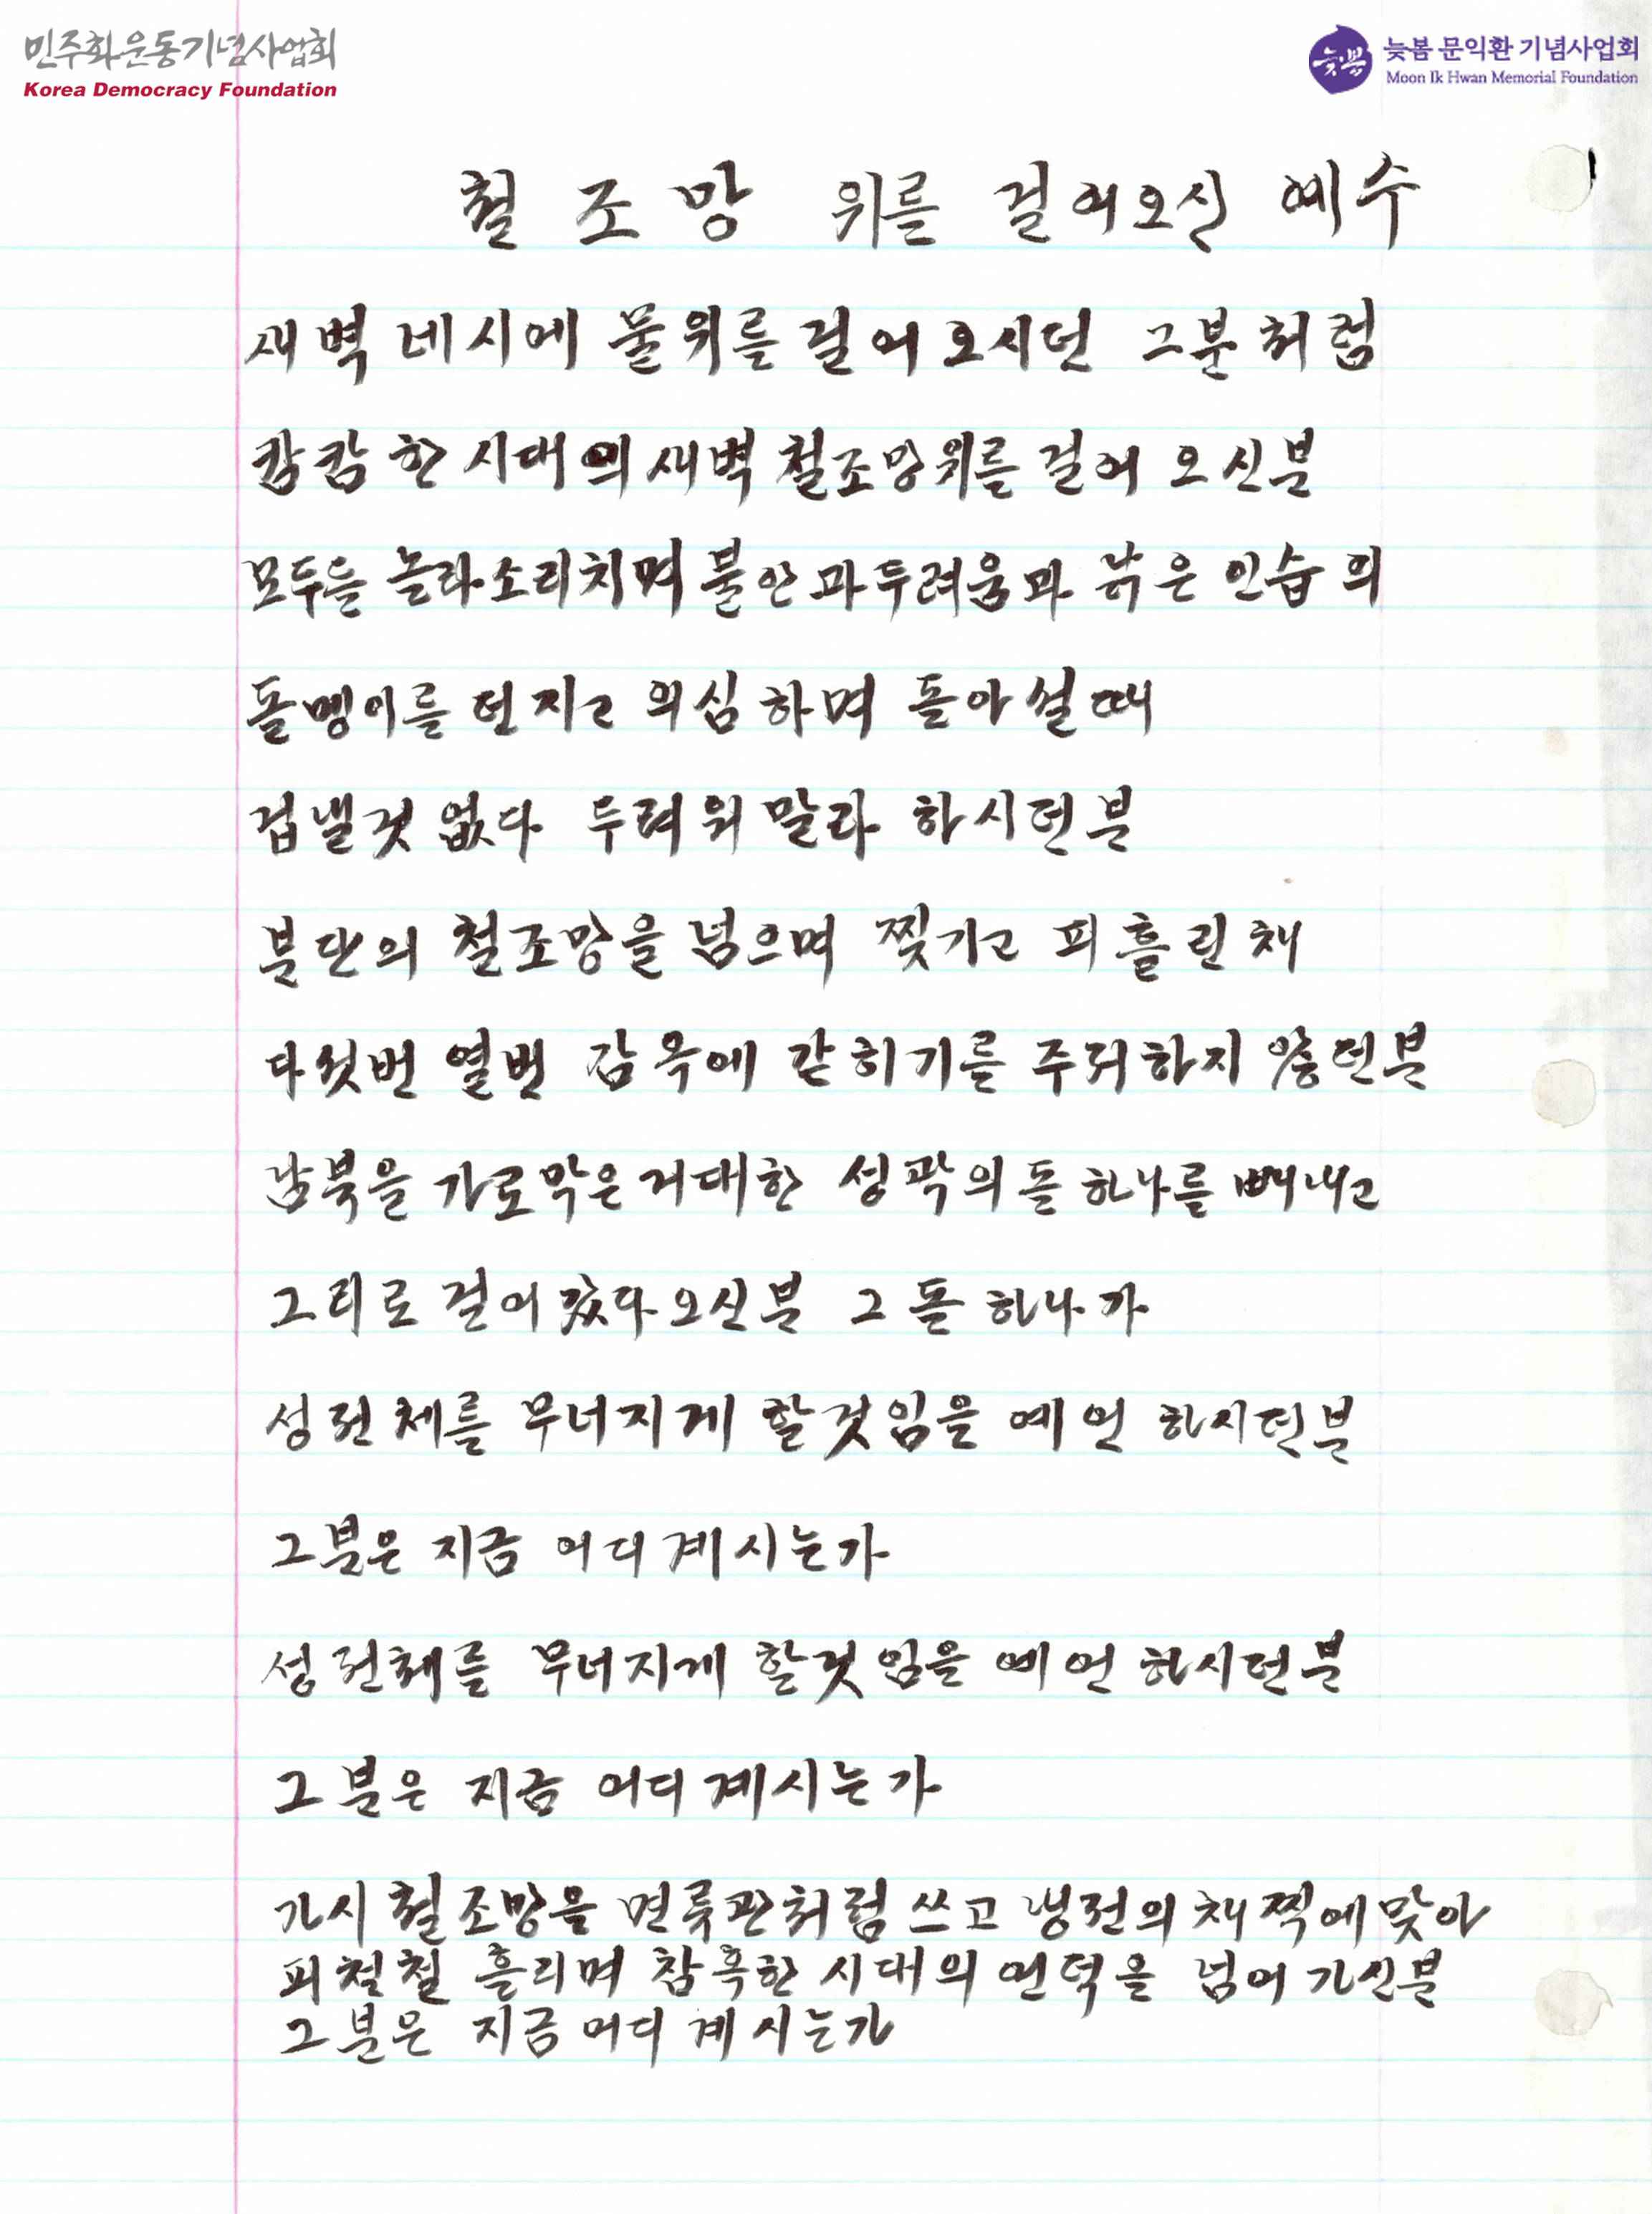 민주화운동기념사업회
Korea Democracy Foundation
늦봄 늦봄 문익환 기념사업회
Moon Ik Hwan Memorial Foundation
철조망 위를 걸어오신 예수
새벽 네시에 물위를 걸어 오시던 그분처럼
캄캄한 시대의 새벽 철조망위를 걸어 오신분
모두들 놀라소리치며 불안과두려움과 낡은 인습의
돌멩이를 던지고 의심하며 돌아설때
겁낼것 없다 두려워말라 하시던분
분단의 철조망을 넘으며 찢기고 피흘린채
다섯번 열번 감옥에 갇히기를 주저하지 않던분
남북을 가로막은 거대한 성곽의 돌 하나를 빼내고
그리로 걸어갔다오신분 그 돌 하나가
성전체를 무너지게 할것임을 예언 하시던분
그분은 지금 어디계시는가
성전체를 무너지게 할것임을 예언 하시던분
그분은 지금 어디계시는가
가시철조망을 면류관처럼 쓰고 냉전의 채찍에맞아
피철철 흘리며 참혹한 시대의 언덕을 넘어 가신분
그분은 지금 어디 계시는가